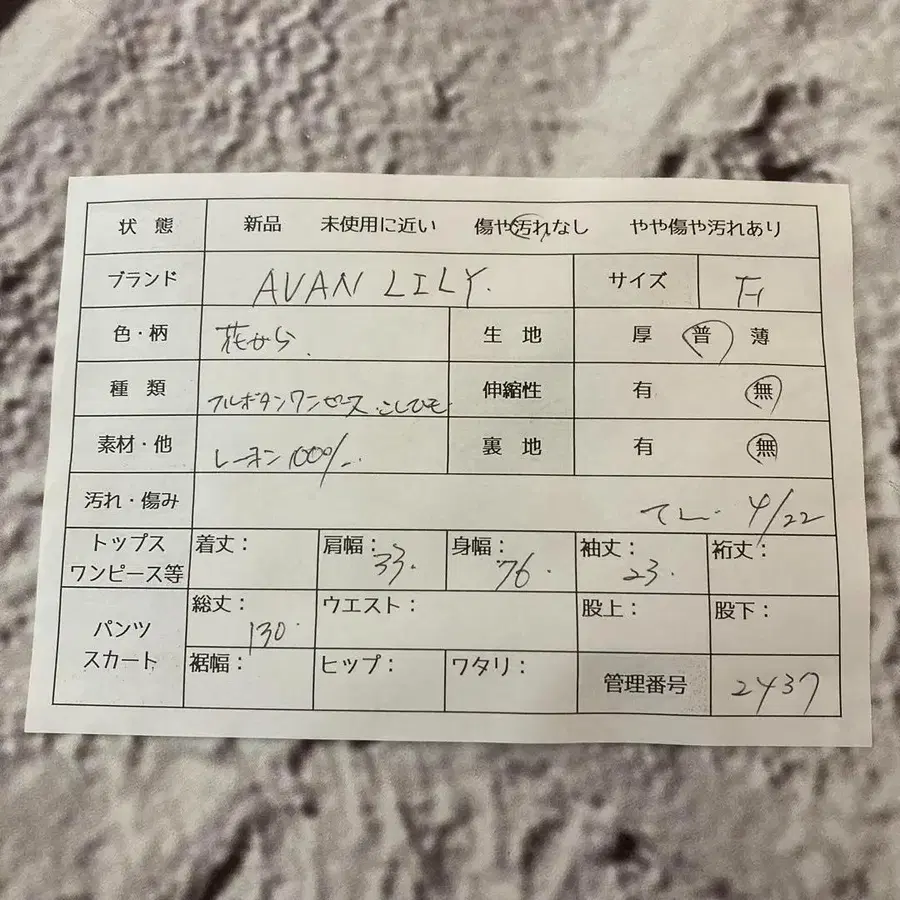 状 態 新品 未使用に近い 傷や汚れなし やや傷や汚れあり
ブランド AVAN LILY. サイズ F
色・柄 花がら. 生 地 厚 普 薄
種 類 フルボタンワンピース.こしひも 伸縮性 有 無
素材・他 レーヨン100%. 裏 地 有 無
汚れ・傷み 4/22
トップス ワンピース等 着丈: 肩幅: 33. 身幅: 76. 袖丈: 23. 裄丈:
パンツ スカート 総丈: 130. ウエスト: 股上: 股下:
裾幅: ヒップ: ワタリ: 管理番号 2437